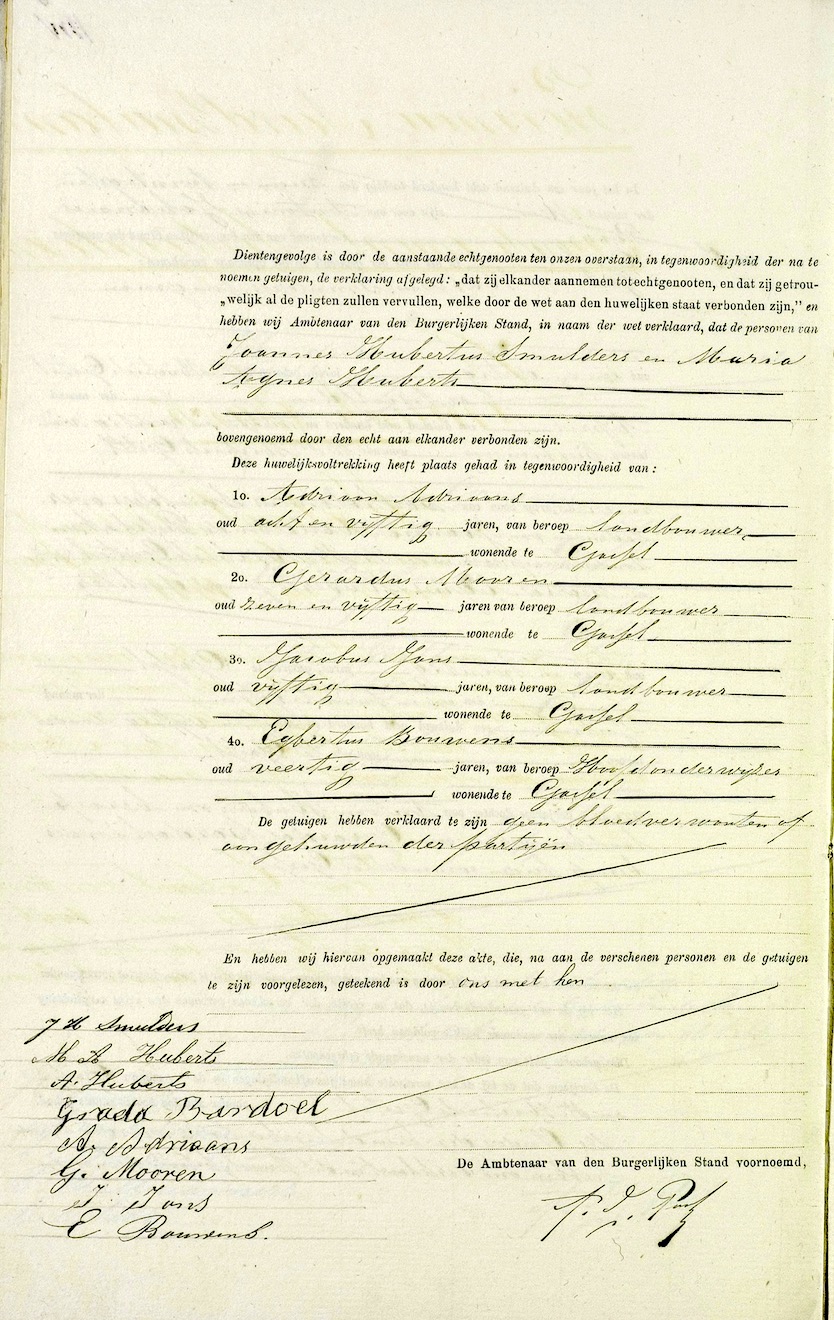 Dientengevolge is door de aanstaande echtgenooten ten onzen overstaan, in tegenwoordigheid der na te
noemen getuigen, de verklaring afgelegd: „dat zij elkander aannemen tot echtgenooten, en dat zij getrou-
„welijk al de pligten zullen vervullen, welke door de wet aan den huwelijken staat verbonden zijn,” en
hebben wij Ambtenaar van den Burgerlijken Stand, in naam der wet verklaard, dat de personen van
Joannes Hubertus Smulders en Maria
Agnes Huberts
bovengenoemd door den echt aan elkander verbonden zijn.
Deze huwelijksvoltrekking heeft plaats gehad in tegenwoordigheid van:
1o. Adriaan Adriaans
oud acht en vijftig jaren, van beroep landbouwer
wonende te Gassel
2o. Gerardus Mooren
oud zeven en vijftig jaren van beroep landbouwer
wonende te Gassel
3o. Jacobus Jans
oud vijftig jaren, van beroep landbouwer
wonende te Gassel
4o. Egbertus Bouwens
oud veertig jaren, van beroep Hoofdonderwijzer
wonende te Gassel
De getuigen hebben verklaard te zijn geen bloedverwanten of
aangehuwden der partijën
En hebben wij hiervan opgemaakt deze akte, die, na aan de verschenen personen en de getuigen
te zijn voorgelezen, geteekend is door ons met hen
J H Smulders
M A Huberts
A. Huberts
Grada Bardoel
A. Adriaans
G. Mooren
J Jans
E Bouwens.
De Ambtenaar van den Burgerlijken Stand voornoemd,